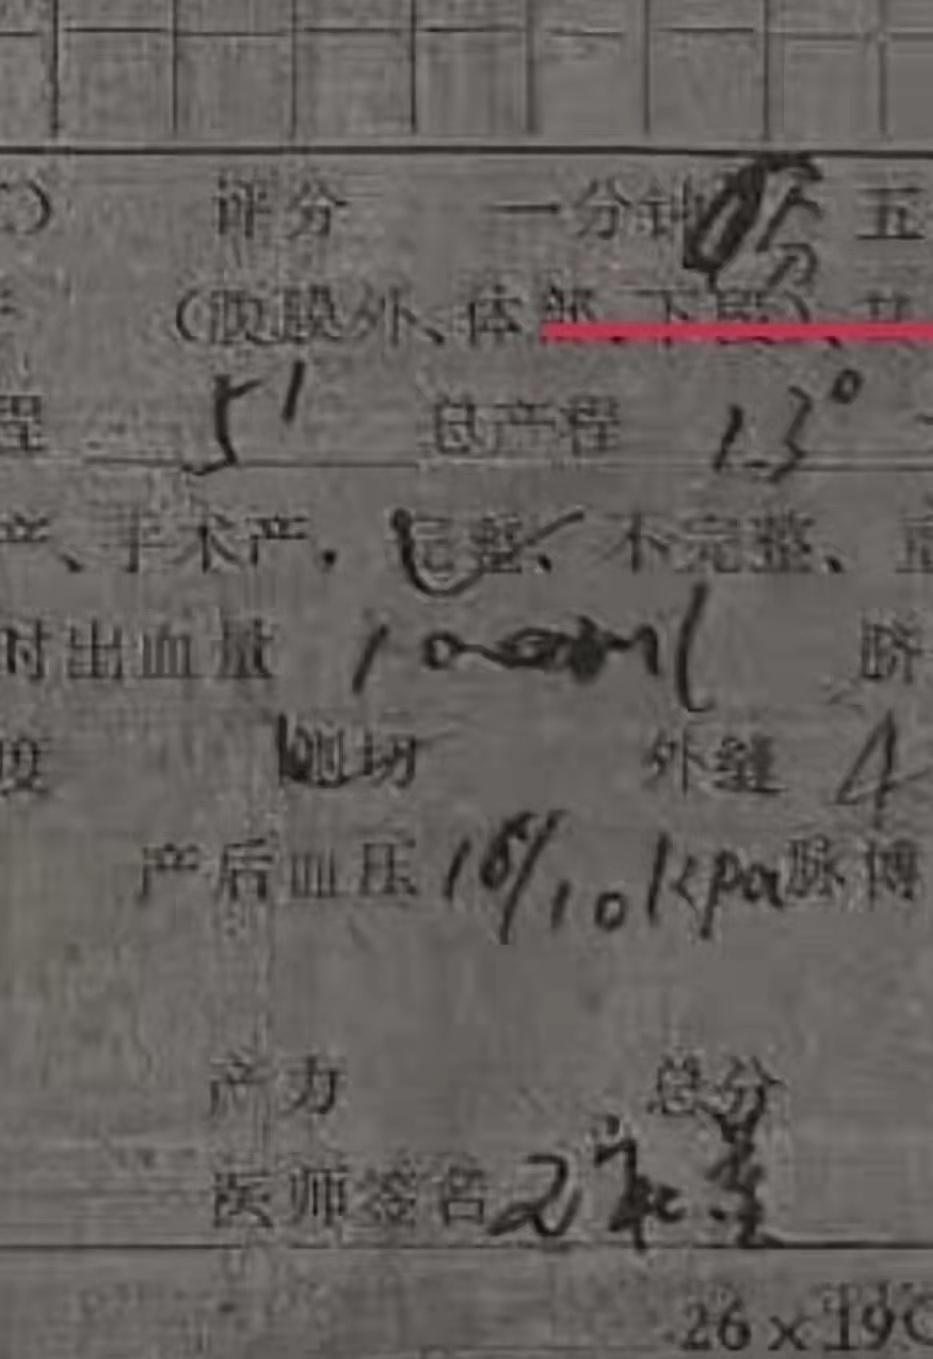 评分 一分钟 五
(腹膜外、体部、下段)、
程 5' 总产程 13°
产、手术产. 完整、不完整、
时出血量 100ml 脐
度 侧切 外缝 4
产后血压 16/10kpa 脉搏
产力 总分
医师签名
26×19C